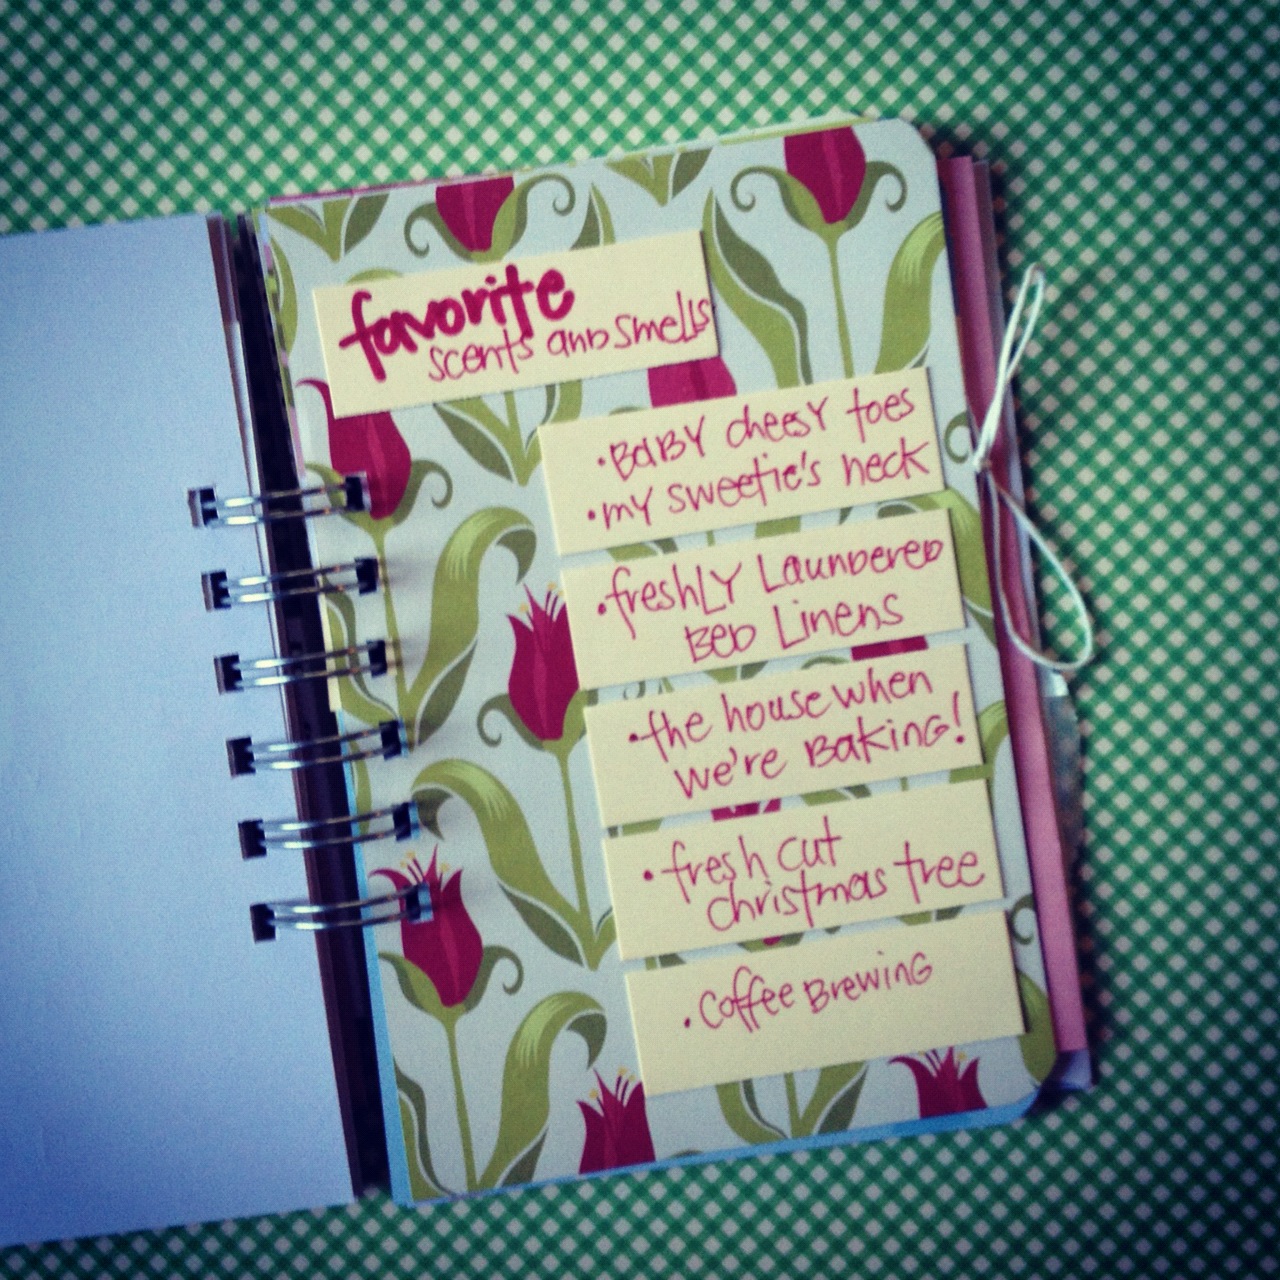 favorite
scents and smells
• BABY cheesy toes
• my sweetie's neck
• freshly Laundered
Bed Linens
• the house when
we're Baking!
• fresh cut
christmas tree
• coffee Brewing